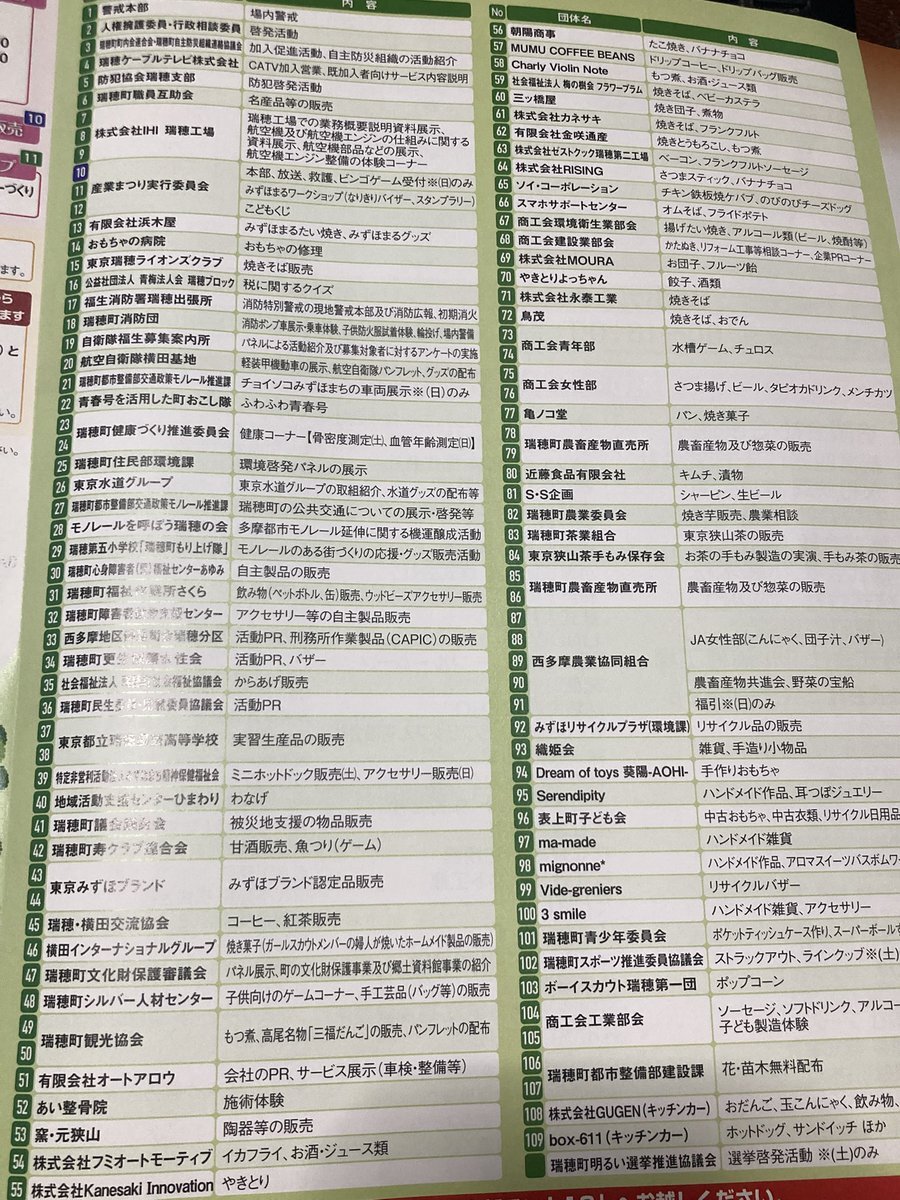 内 容
1 警戒本部 場内警戒
2 人権擁護委員・行政相談委員 啓発活動
3 瑞穂町町内会連合会・瑞穂町自主防災組織連絡協議会 加入促進活動、自主防災組織の活動紹介
4 瑞穂ケーブルテレビ株式会社 CATV加入営業、既加入者向けサービス内容説明
5 防犯協会瑞穂支部 防犯啓発活動
6 瑞穂町職員互助会 名産品等の販売
7
8 株式会社IHI 瑞穂工場 瑞穂工場での業務概要説明資料展示、
航空機及び航空機エンジンの仕組みに関する
資料展示、航空機部品などの展示、
9 航空機エンジン整備の体験コーナー
10 本部、放送、救護、ビンゴゲーム受付※(日)のみ
11 産業まつり実行委員会 みずほまるワークショップ(なりきりバイザー、スタンプラリー)
12 こどもくじ
13 有限会社浜木屋 みずほまるたい焼き、みずほまるグッズ
14 おもちゃの病院 おもちゃの修理
15 東京瑞穂ライオンズクラブ 焼きそば販売
16 公益社団法人 青梅法人会 瑞穂ブロック 税に関するクイズ
17 福生消防署瑞穂出張所 消防特別警戒の現地警戒本部及び消防広報、初期消火
18 瑞穂町消防団 消防ポンプ車展示・乗車体験、子供防火服試着体験、輪投げ、場内警備
19 自衛隊福生募集案内所 パネルによる活動紹介及び募集対象者に対するアンケートの実施
20 航空自衛隊横田基地 軽装甲機動車の展示、航空自衛隊パンフレット、グッズの配布
21 瑞穂町都市整備部交通政策モノレール推進課 チョイソコみずほまちの車両展示※(日)のみ
22 青春号を活用した町おこし隊 ふわふわ青春号
23
24 瑞穂町健康づくり推進委員会 健康コーナー【骨密度測定(土)、血管年齢測定(日)】
25 瑞穂町住民部環境課 環境啓発パネルの展示
26 東京水道グループ 東京水道グループの取組紹介、水道グッズの配布等
27 瑞穂町都市整備部交通政策モノレール推進課 瑞穂町の公共交通についての展示・啓発等
28 モノレールを呼ぼう瑞穂の会 多摩都市モノレール延伸に関する機運醸成活動
29 瑞穂第五小学校「瑞穂町もり上げ隊」 モノレールのある街づくりの応援・グッズ販売活動
30 瑞穂町心身障害者(児)福祉センターあゆみ 自主製品の販売
31 瑞穂町福祉作業所さくら 飲み物(ペットボトル、缶)販売、ウッドビーズアクセサリー販売
32 瑞穂町障害者 センター アクセサリー等の自主製品販売
33 西多摩地区 瑞穂分区 活動PR、刑務所作業製品(CAPIC)の販売
34 瑞穂町更生 女性会 活動PR、バザー
35 社会福祉法人 福祉協議会 からあげ販売
36 瑞穂町民生 委員協議会 活動PR
37
38 東京都立瑞 高等学校 実習生産品の販売
39 特定非営利活動 精神保健福祉会 ミニホットドック販売(土)、アクセサリー販売(日)
40 地域活動支援センターひまわり わなげ
41 瑞穂町議会 会 被災地支援の物品販売
42 瑞穂町寿クラブ連合会 甘酒販売、魚つり(ゲーム)
43
44 東京みずほブランド みずほブランド認定品販売
45 瑞穂・横田交流協会 コーヒー、紅茶販売
46 横田インターナショナルグループ 焼き菓子(ガールスカウトメンバーの婦人が焼いたホームメイド製品の販売)
47 瑞穂町文化財保護審議会 パネル展示、町の文化財保護事業及び郷土資料館事業の紹介
48 瑞穂町シルバー人材センター 子供向けのゲームコーナー、手工芸品(バッグ等)の販売
49
50 瑞穂町観光協会 もつ煮、高尾名物「三福だんご」の販売、パンフレットの配布
51 有限会社オートアロウ 会社のPR、サービス展示(車検・整備等)
52 あい整骨院 施術体験
53 窯・元狭山 陶器等の販売
54 株式会社フミオートモーティブ イカフライ、お酒・ジュース類
55 株式会社Kanesaki Innovation やきとり
No 団体名 内 容
56 朝陽商事 たこ焼き、バナナチョコ
57 MUMU COFFEE BEANS ドリップコーヒー、ドリップバッグ販売
58 Charly Violin Note もつ煮、お酒・ジュース類
59 社会福祉法人 梅の樹会 フラワープラム 焼きそば、ベビーカステラ
60 三ッ橋屋 焼き団子、煮物
61 株式会社カネサキ 焼きそば、フランクフルト
62 有限会社金咲通産 焼きとうもろこし、もつ煮
63 株式会社ゼストクック瑞穂第二工場 ベーコン、フランクフルトソーセージ
64 株式会社RISING さつまスティック、バナナチョコ
65 ソイ・コーポレーション チキン鉄板焼ケバブ、のびのびチーズドッグ
66 スマホサポートセンター オムそば、フライドポテト
67 商工会環境衛生業部会 揚げたい焼き、アルコール類(ビール、焼酎等)
68 商工会建設業部会 かたぬき、リフォーム工事等相談コーナー、企業PRコーナー
69 株式会社MOURA お団子、フルーツ飴
70 やきとりよっちゃん 餃子、酒類
71 株式会社永泰工業 焼きそば
72 鳥茂 焼きそば、おでん
73
74 商工会青年部 水槽ゲーム、チュロス
75
76 商工会女性部 さつま揚げ、ビール、タピオカドリンク、メンチカツ
77 亀ノコ堂 パン、焼き菓子
78
79 瑞穂町農畜産物直売所 農畜産物及び惣菜の販売
80 近藤食品有限会社 キムチ、漬物
81 S・S企画 シャーピン、生ビール
82 瑞穂町農業委員会 焼き芋販売、農業相談
83 瑞穂町茶業組合 東京狭山茶の販売
84 東京狭山茶手もみ保存会 お茶の手もみ製造の実演、手もみ茶の販売
85
86 瑞穂町農畜産物直売所 農畜産物及び惣菜の販売
87
88 JA女性部(こんにゃく、団子汁、バザー)
89 西多摩農業協同組合
90 農畜産物共進会、野菜の宝船
91 福引※(日)のみ
92 みずほリサイクルプラザ(環境課) リサイクル品の販売
93 織姫会 雑貨、手造り小物品
94 Dream of toys 葵陽-AOHI- 手作りおもちゃ
95 Serendipity ハンドメイド作品、耳つぼジュエリー
96 表上町子ども会 中古おもちゃ、中古衣類、リサイクル日用品
97 ma-made ハンドメイド雑貨
98 mignonne* ハンドメイド作品、アロマスイーツバスボムワー
99 Vide-greniers リサイクルバザー
100 3 smile ハンドメイド雑貨、アクセサリー
101 瑞穂町青少年委員会 ポケットティッシュケース作り、スーパーボール
102 瑞穂町スポーツ推進委員協議会 ストラックアウト、ラインクッブ※(土)
103 ボーイスカウト瑞穂第一団 ポップコーン
104 商工会工業部会 ソーセージ、ソフトドリンク、アルコー
105 子ども製造体験
106
107 瑞穂町都市整備部建設課 花・苗木無料配布
108 株式会社GUGEN(キッチンカー) おだんご、玉こんにゃく、飲み物、
109 box-611(キッチンカー) ホットドッグ、サンドイッチ ほか
瑞穂町明るい選挙推進協議会 選挙啓発活動 ※(土)のみ
10
11
づくり
ます。
から
ます
と